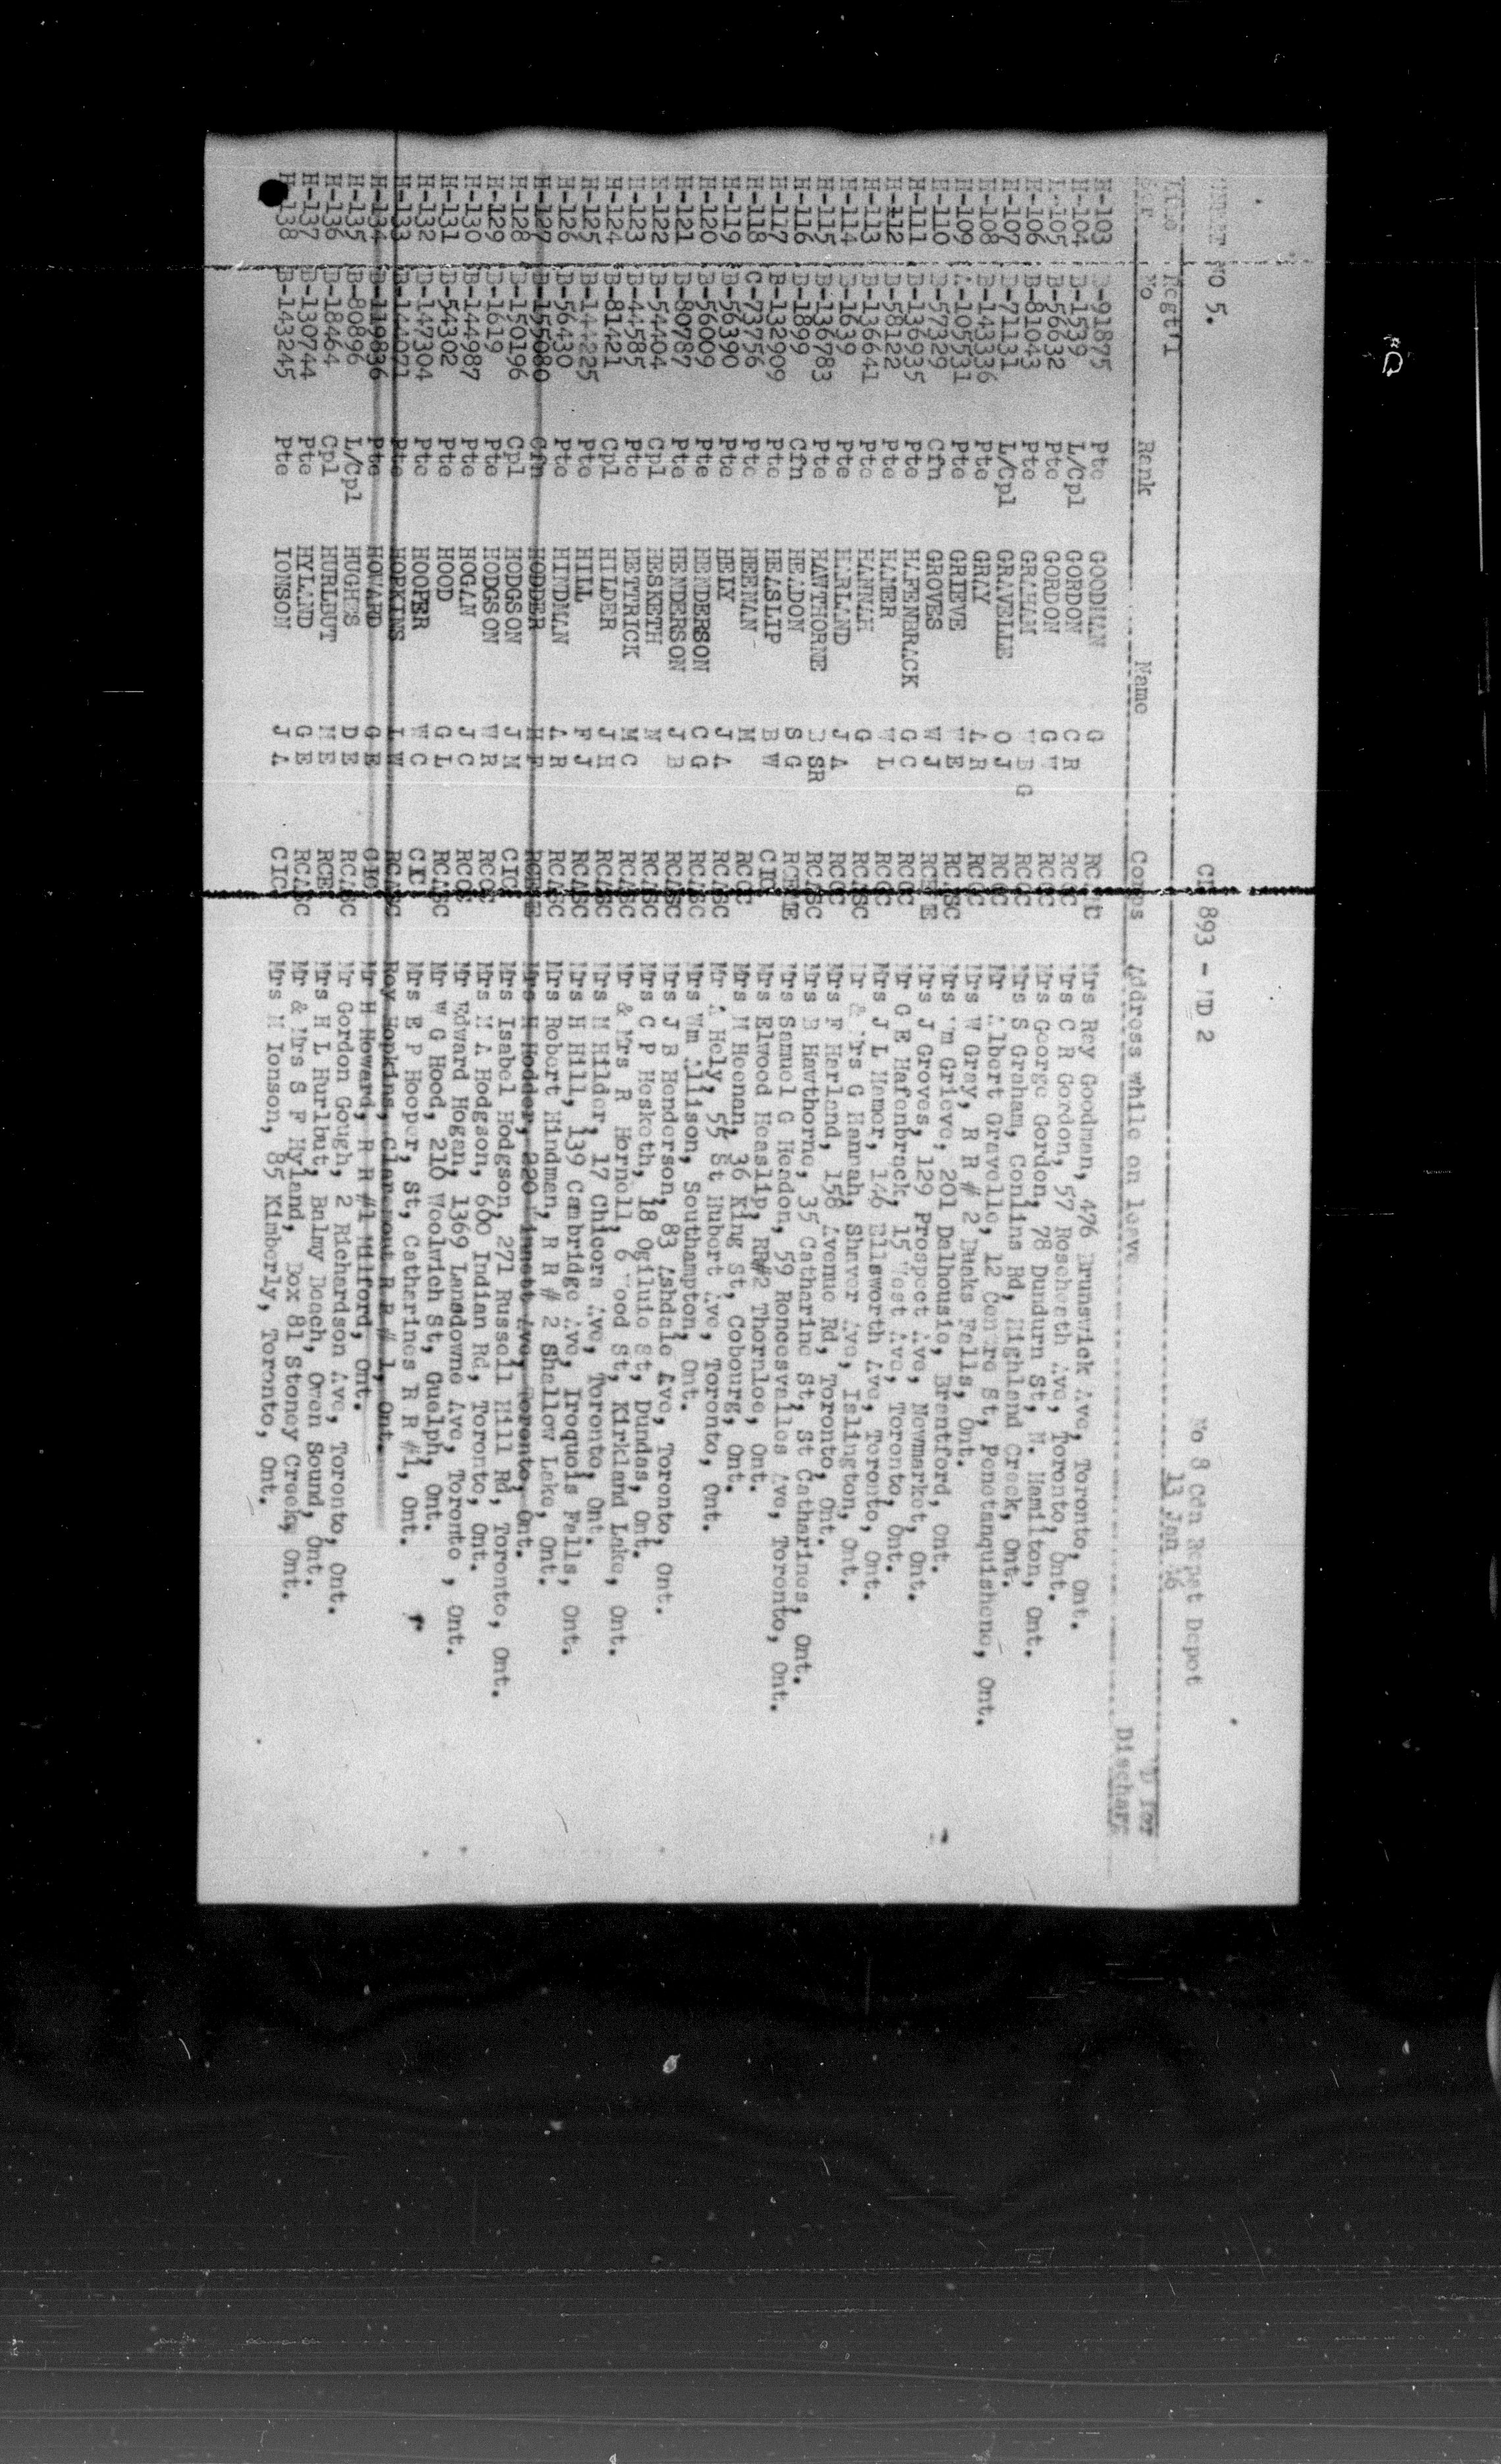 SHEET NO 5. 893 - MD 2 No 8 Cdn Repat Depot
13 Jan 46
Regt'l D for
No Rank Name Corps Address while on leave Discharg
H-103 -91875 Pte GOODMAN G Mrs Ray Goodman, 476 Brunswick Ave, Toronto, Ont.
H-104 B-1539 L/Cpl GORDON C R Mrs C R Gordon, 57 Roseheath Ave, Toronto, Ont.
H-105 B-56632 Pte GORDON G W Mrs George Gordon, 78 Dundurn St, N. Hamilton, Ont.
H-106 B-81043 Pte GRAHAM B G Mrs S Graham, Conlins Rd, Highland Creek, Ont.
H-107 B-71131 L/Cpl GRAVELLE O J Mr Albert Gravelle, 12 Centre St, Penetanquishene, Ont.
H-108 B-143336 Pte GRAY A R Mrs W Gray, R R # 2 Falls, Ont.
H-109 A-105531 Pte GRIEVE W E RCASC Mrs Wm Grieve, 201 Dalhousie, Brantford, Ont.
H-110 B-57329 Cfn GROVES W J RCEME Mrs J Groves, 129 Prospect Ave, Newmarket, Ont.
H-111 B-136935 Pte HAFENBRACK G C Mr G E Hafenbrack, 15 West Ave, Toronto, Ont.
H-112 B-58122 Pte HAMER W L Mrs J L Hamer, 146 Ellsworth Ave, Toronto, Ont.
H-113 B-136641 Pte HANNAH G RCASC Mr & Mrs G Hannah, Shaver Ave, Islington, Ont.
H-114 B-1639 Pte HARLAND J A Mrs F Harland, 158 Avenue Rd, Toronto, Ont.
H-115 B-136783 Pte HAWTHORNE B SR RCASC Mrs B Hawthorne, 35 Catharine St, St Catharines, Ont.
H-116 B-1899 Cfn HEADON S G RCEME Mrs Samuel G Headon, 59 Roncesvalles Ave, Toronto, Ont.
H-117 B-132909 Pte HEASLIP B W CIC Mrs Elwood Heaslip, RR#2 Thornloe, Ont.
H-118 C-73756 Pte HEENAN M Mrs M Heenan, 36 King St, Cobourg, Ont.
H-119 B-56390 Pte HELY J A RCASC Mr A Hely, 55 St Hubert Ave, Toronto, Ont.
H-120 B-56009 Pte HENDERSON C G RCASC Mrs Wm Allison, Southampton, Ont.
H-121 B-80787 Pte HENDERSON J B RCASC Mrs J B Henderson, 83 Ashdale Ave, Toronto, Ont.
H-122 B-54404 Cpl HESKETH N RCASC Mrs C P Hesketh, 18 Ogilvie St, Dundas, Ont.
H-123 B-44585 Pte HETTRICK M C RCASC Mr & Mrs R Hornell, 6 Wood St, Kirkland Lake, Ont.
H-124 B-81421 Cpl HILDER J H RCASC Mrs M Hilder, 17 Chicora Ave, Toronto, Ont.
H-125 B-144225 Pte HILL F J RCASC Mrs H Hill, 139 Cambridge Ave, Iroquois Falls, Ont.
H-126 B-56430 Pte HINDMAN A R RCASC Mrs Robert Hindman, R R # 2 Shallow Lake, Ont.
H-127 B-155080 Cfn HODDER H F RCEME Mrs H Hodder, 220 Ave, Toronto, Ont.
H-128 B-150196 Cpl HODGSON J M CIC Mrs Isabel Hodgson, 271 Russell Hill Rd, Toronto, Ont.
H-129 B-1619 Pte HODGSON W R Mrs M A Hodgson, 600 Indian Rd, Toronto, Ont.
H-130 B-144987 Pte HOGAN J C Mr Edward Hogan, 1369 Lansdowne Ave, Toronto , Ont.
H-131 B-54302 Pte HOOD G L RCASC Mr W G Hood, 210 Woolwich St, Guelph, Ont.
H-132 B-147304 Pte HOOPER W C CIC Mrs E P Hooper, St, Catharines R R #1, Ont.
H-133 B-144071 Pte HOPKINS L W RCASC Roy Hopkins, R R # 1, Ont.
H-134 B-119836 Pte HOWARD G E CIC Mr H Howard, R R #1 Milford, Ont.
H-135 B-80896 L/Cpl HUGHES D E RCASC Mr Gordon Gough, 2 Richardson Ave, Toronto, Ont.
H-136 B-18464 Cpl HURLBUT M E RCE Mrs H L Hurlbut, Balmy Beach, Owen Sound, Ont.
H-137 B-130744 Pte HYLAND G E RCASC Mr & Mrs S F Hyland, Box 81 Stoney Creek, Ont.
H-138 B-143245 Pte IONSON J A CIC Mrs M Ionson, 85 Kimberly, Toronto, Ont.